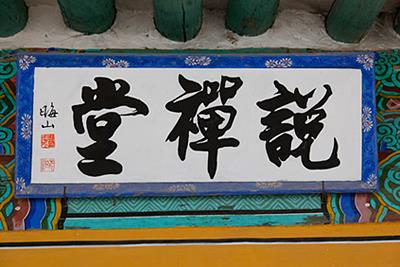 說禪堂
晦山